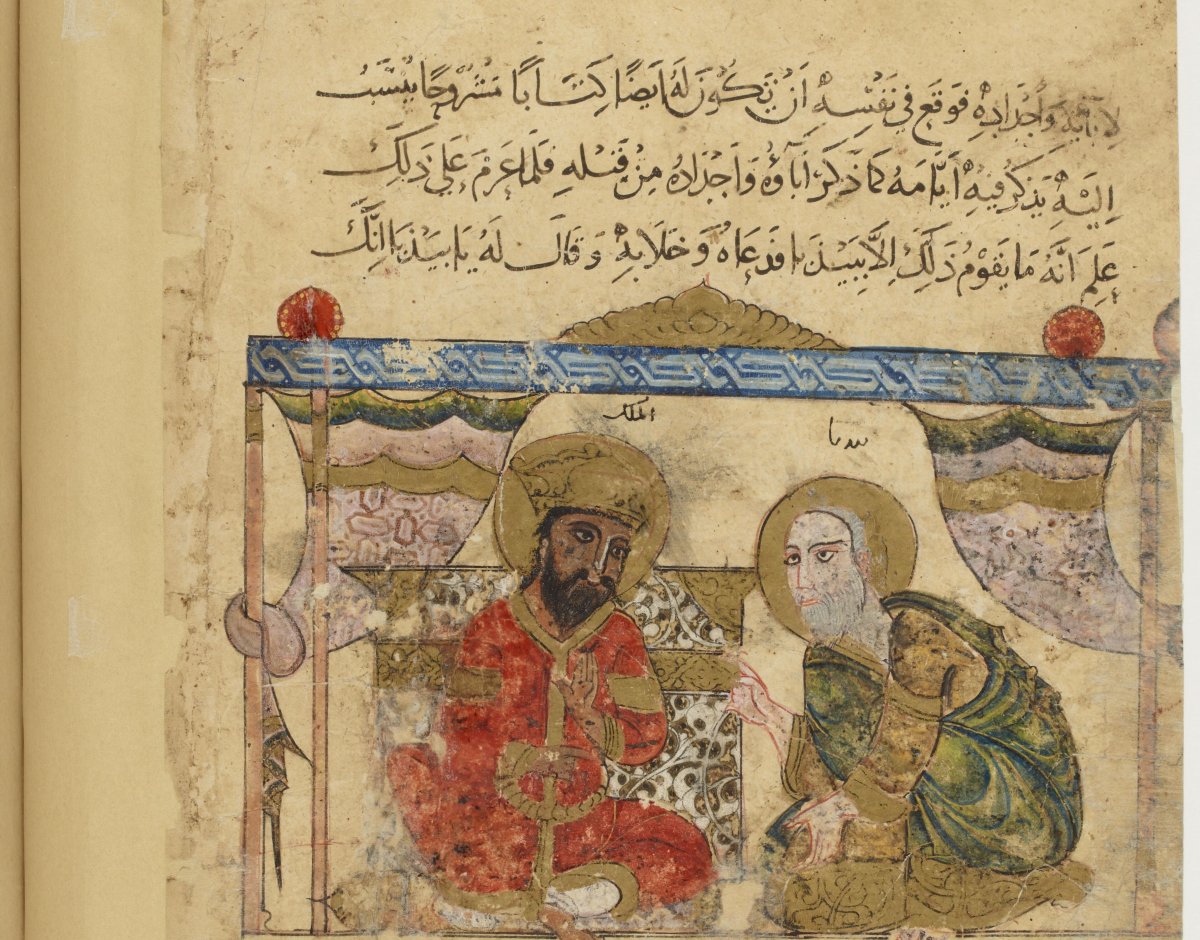 لِآبَائِهِ وَأَجْدَادِهِ فَوَقَعَ فِي نَفْسِهِ أَنْ يَكُونَ لَهُ أَيْضًا كِتَابًا مَشْرُوحًا يُنْسَبُ
إِلَيْهِ يَذكُرُ فِيهِ أَيَّامَهُ كَمَا ذَكَرَ آبَاؤُهُ وَأَجْدَادُهُ مِنْ قَبْلِهِ فَلَمَّا عَزَمَ عَلَى ذَلِكَ
عَلِمَ أَنَّهُ مَا يَقُومُ ذَلِكَ إِلَّا بِبَيْدَبَا فَدَعَاهُ وَخَلَا بِهِ وَقَالَ لَهُ يَا بَيْدَبَا إِنَّكَ
الملك
بيدبا